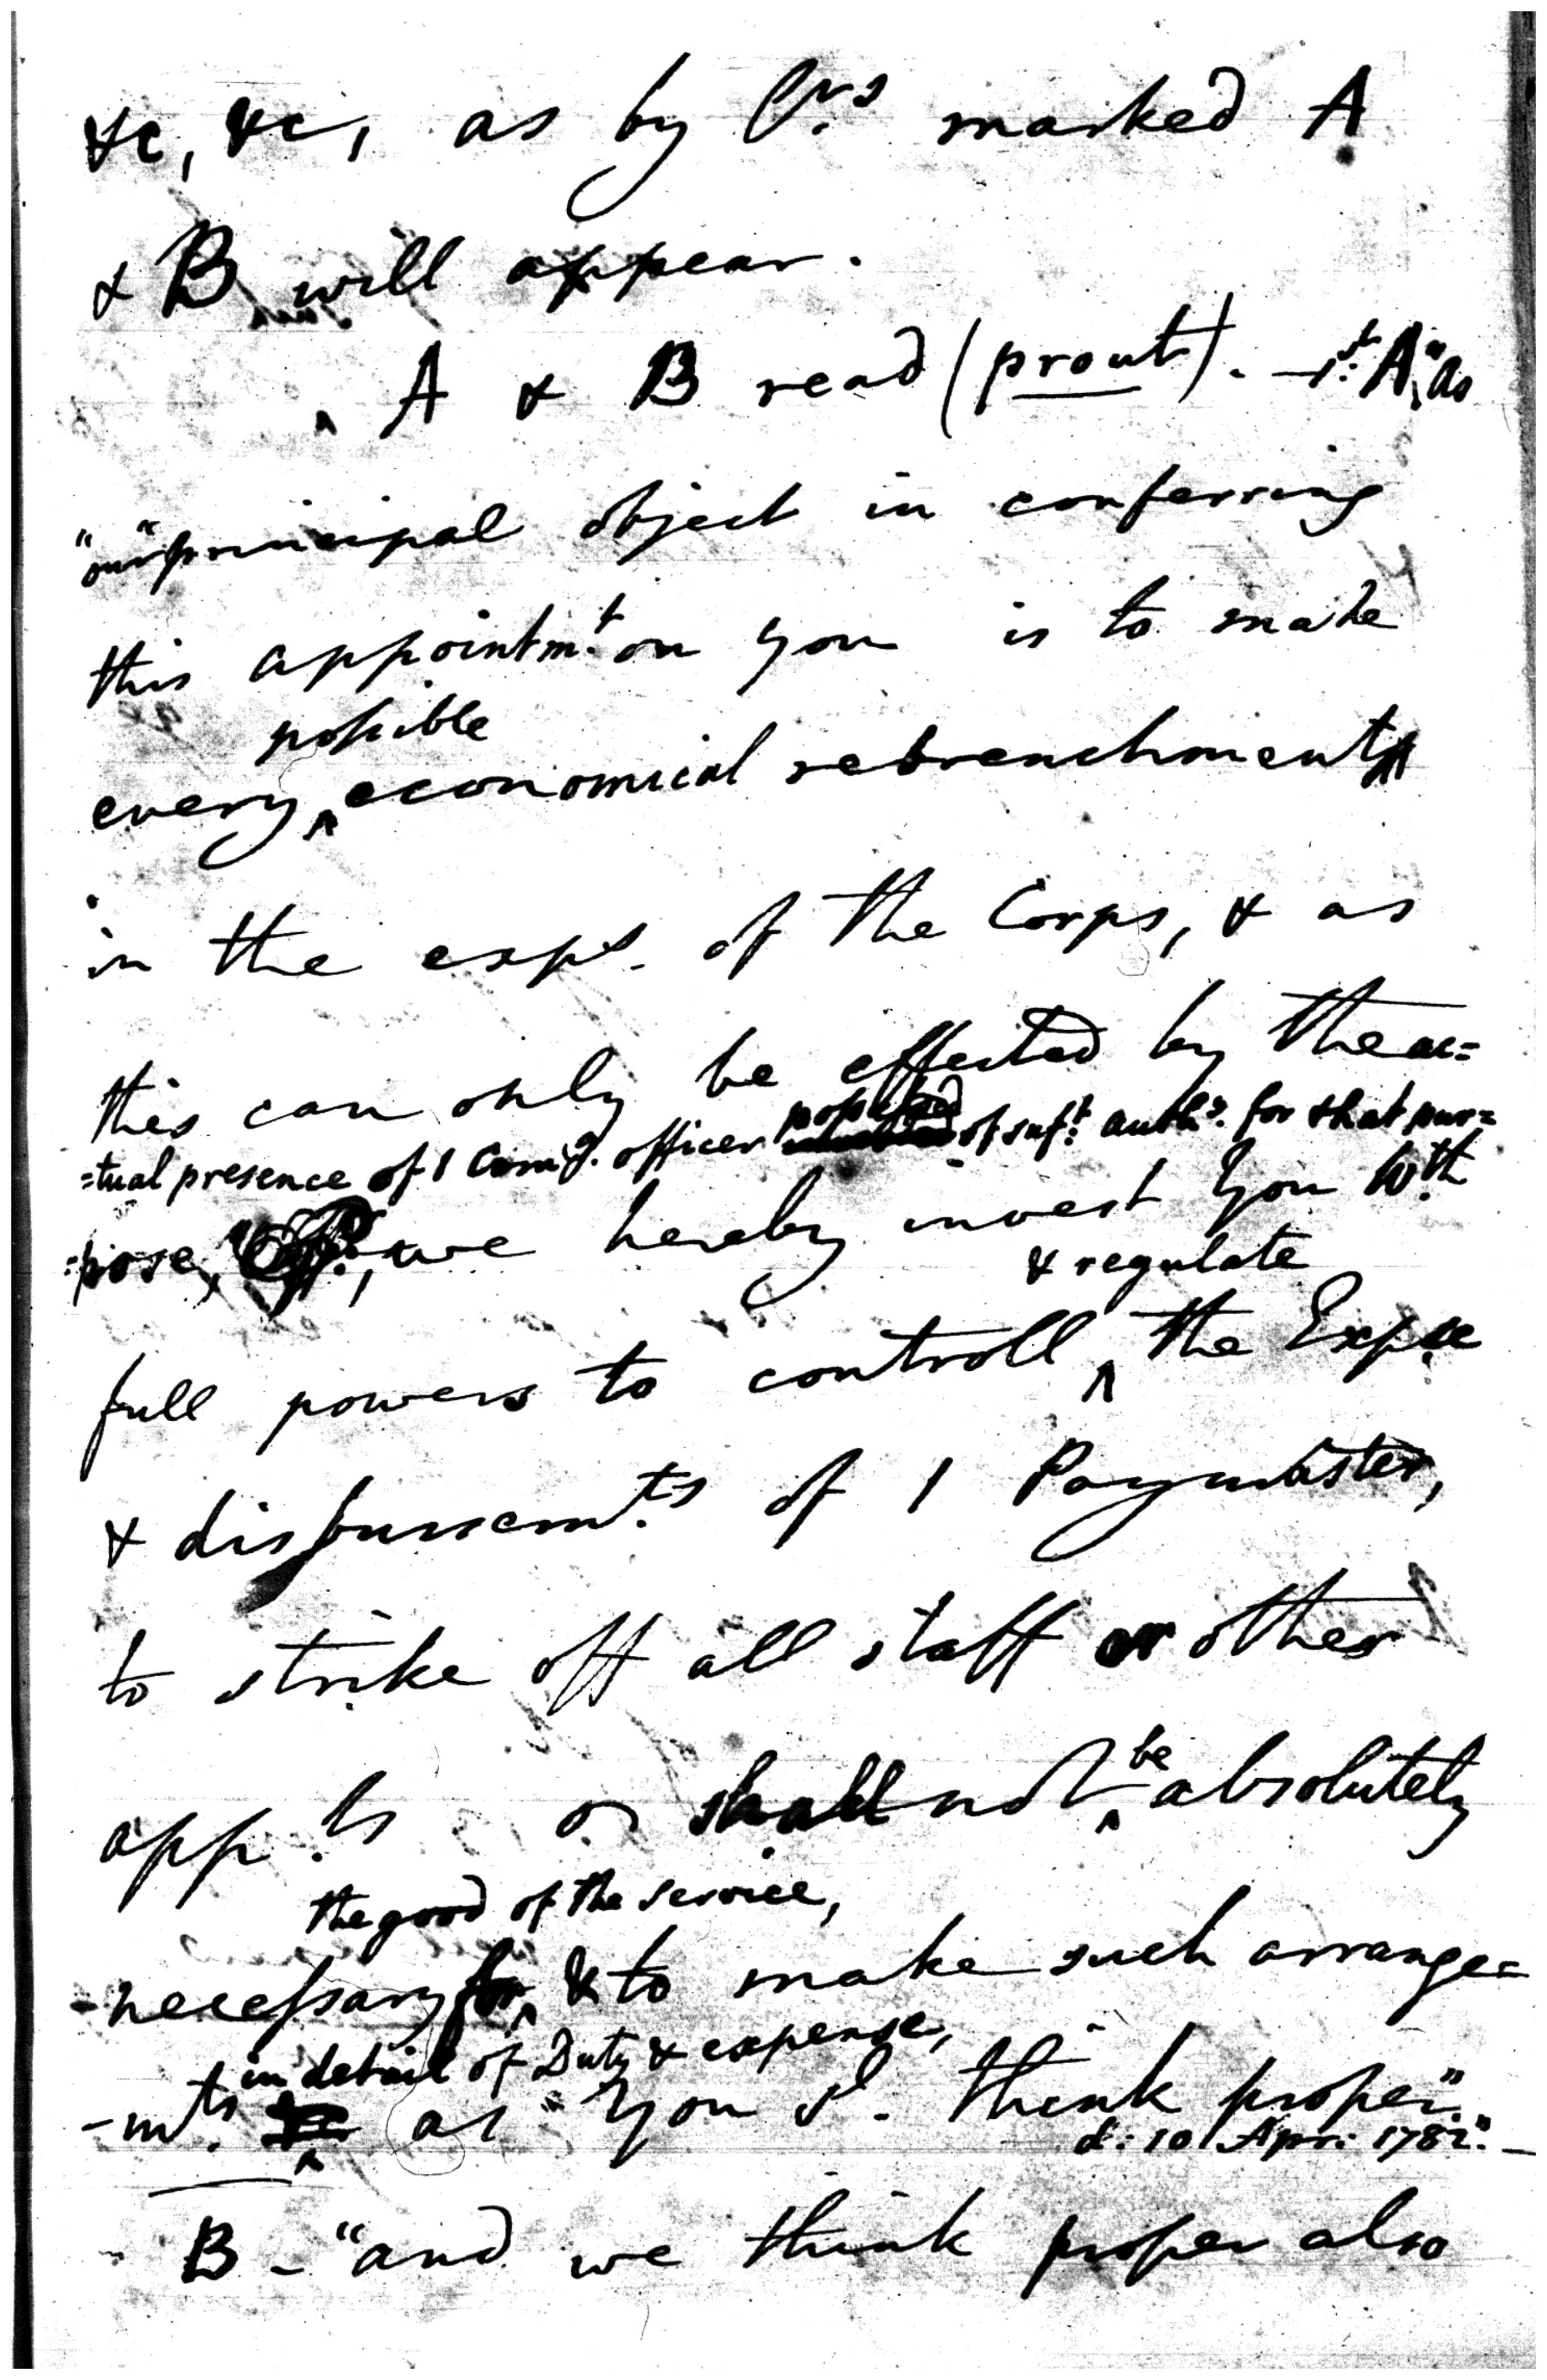 &c, &c, as by Prs. marked A
& B will appear.
A & B read (prout). - 1st: A, "as
"our "principal object in conferring
this appointmt. on you is to make
possible
every ^ economical retrenchment
in the exps. of the Corps, & as
this can only be effected by the ac=
=tual presence of 1 Comg. officer possessed of suft. auths. for that pur=
=pose, we hereby invest you wth
& regulate
full powers to controll ^ the Expce
& disbursemts. of 1 Paymaster,
to strike off all staff or other
be
appts. as shall not ^ absolutely
the good of the service,
necessary for ^ & to make such arrange=
in detail of Duty & expense,
-mts. ^ as you sd. think proper."
d: 10 Apr: 1782." -
B - "and we think proper also